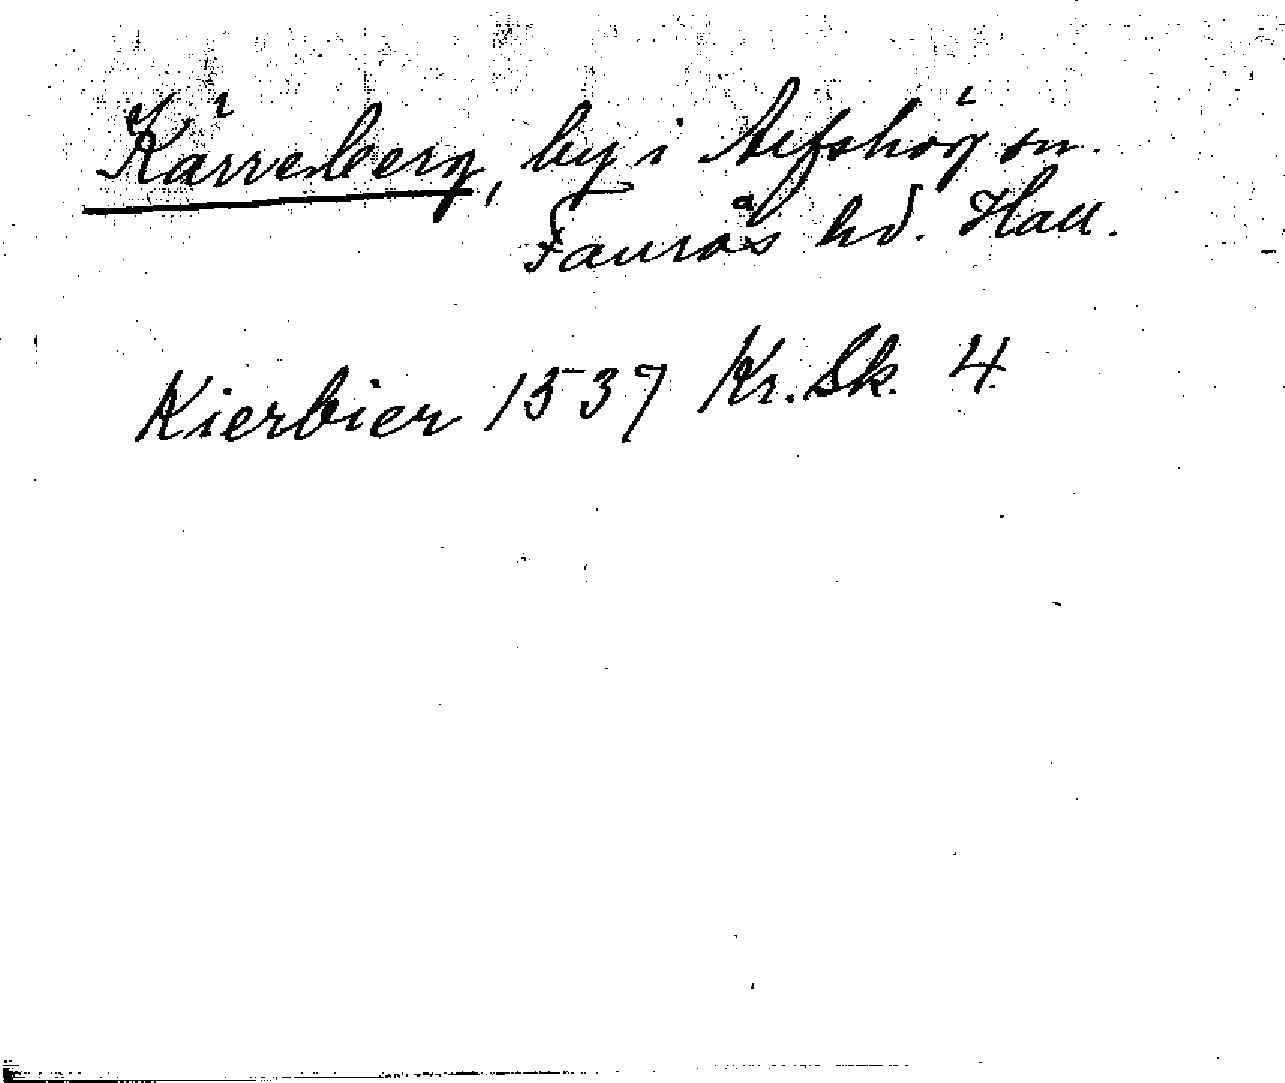 Kärreberg, by i Alfshög sn.
Faurås hd. Hall.
Kierbier 1537 Kr. Sk. 4